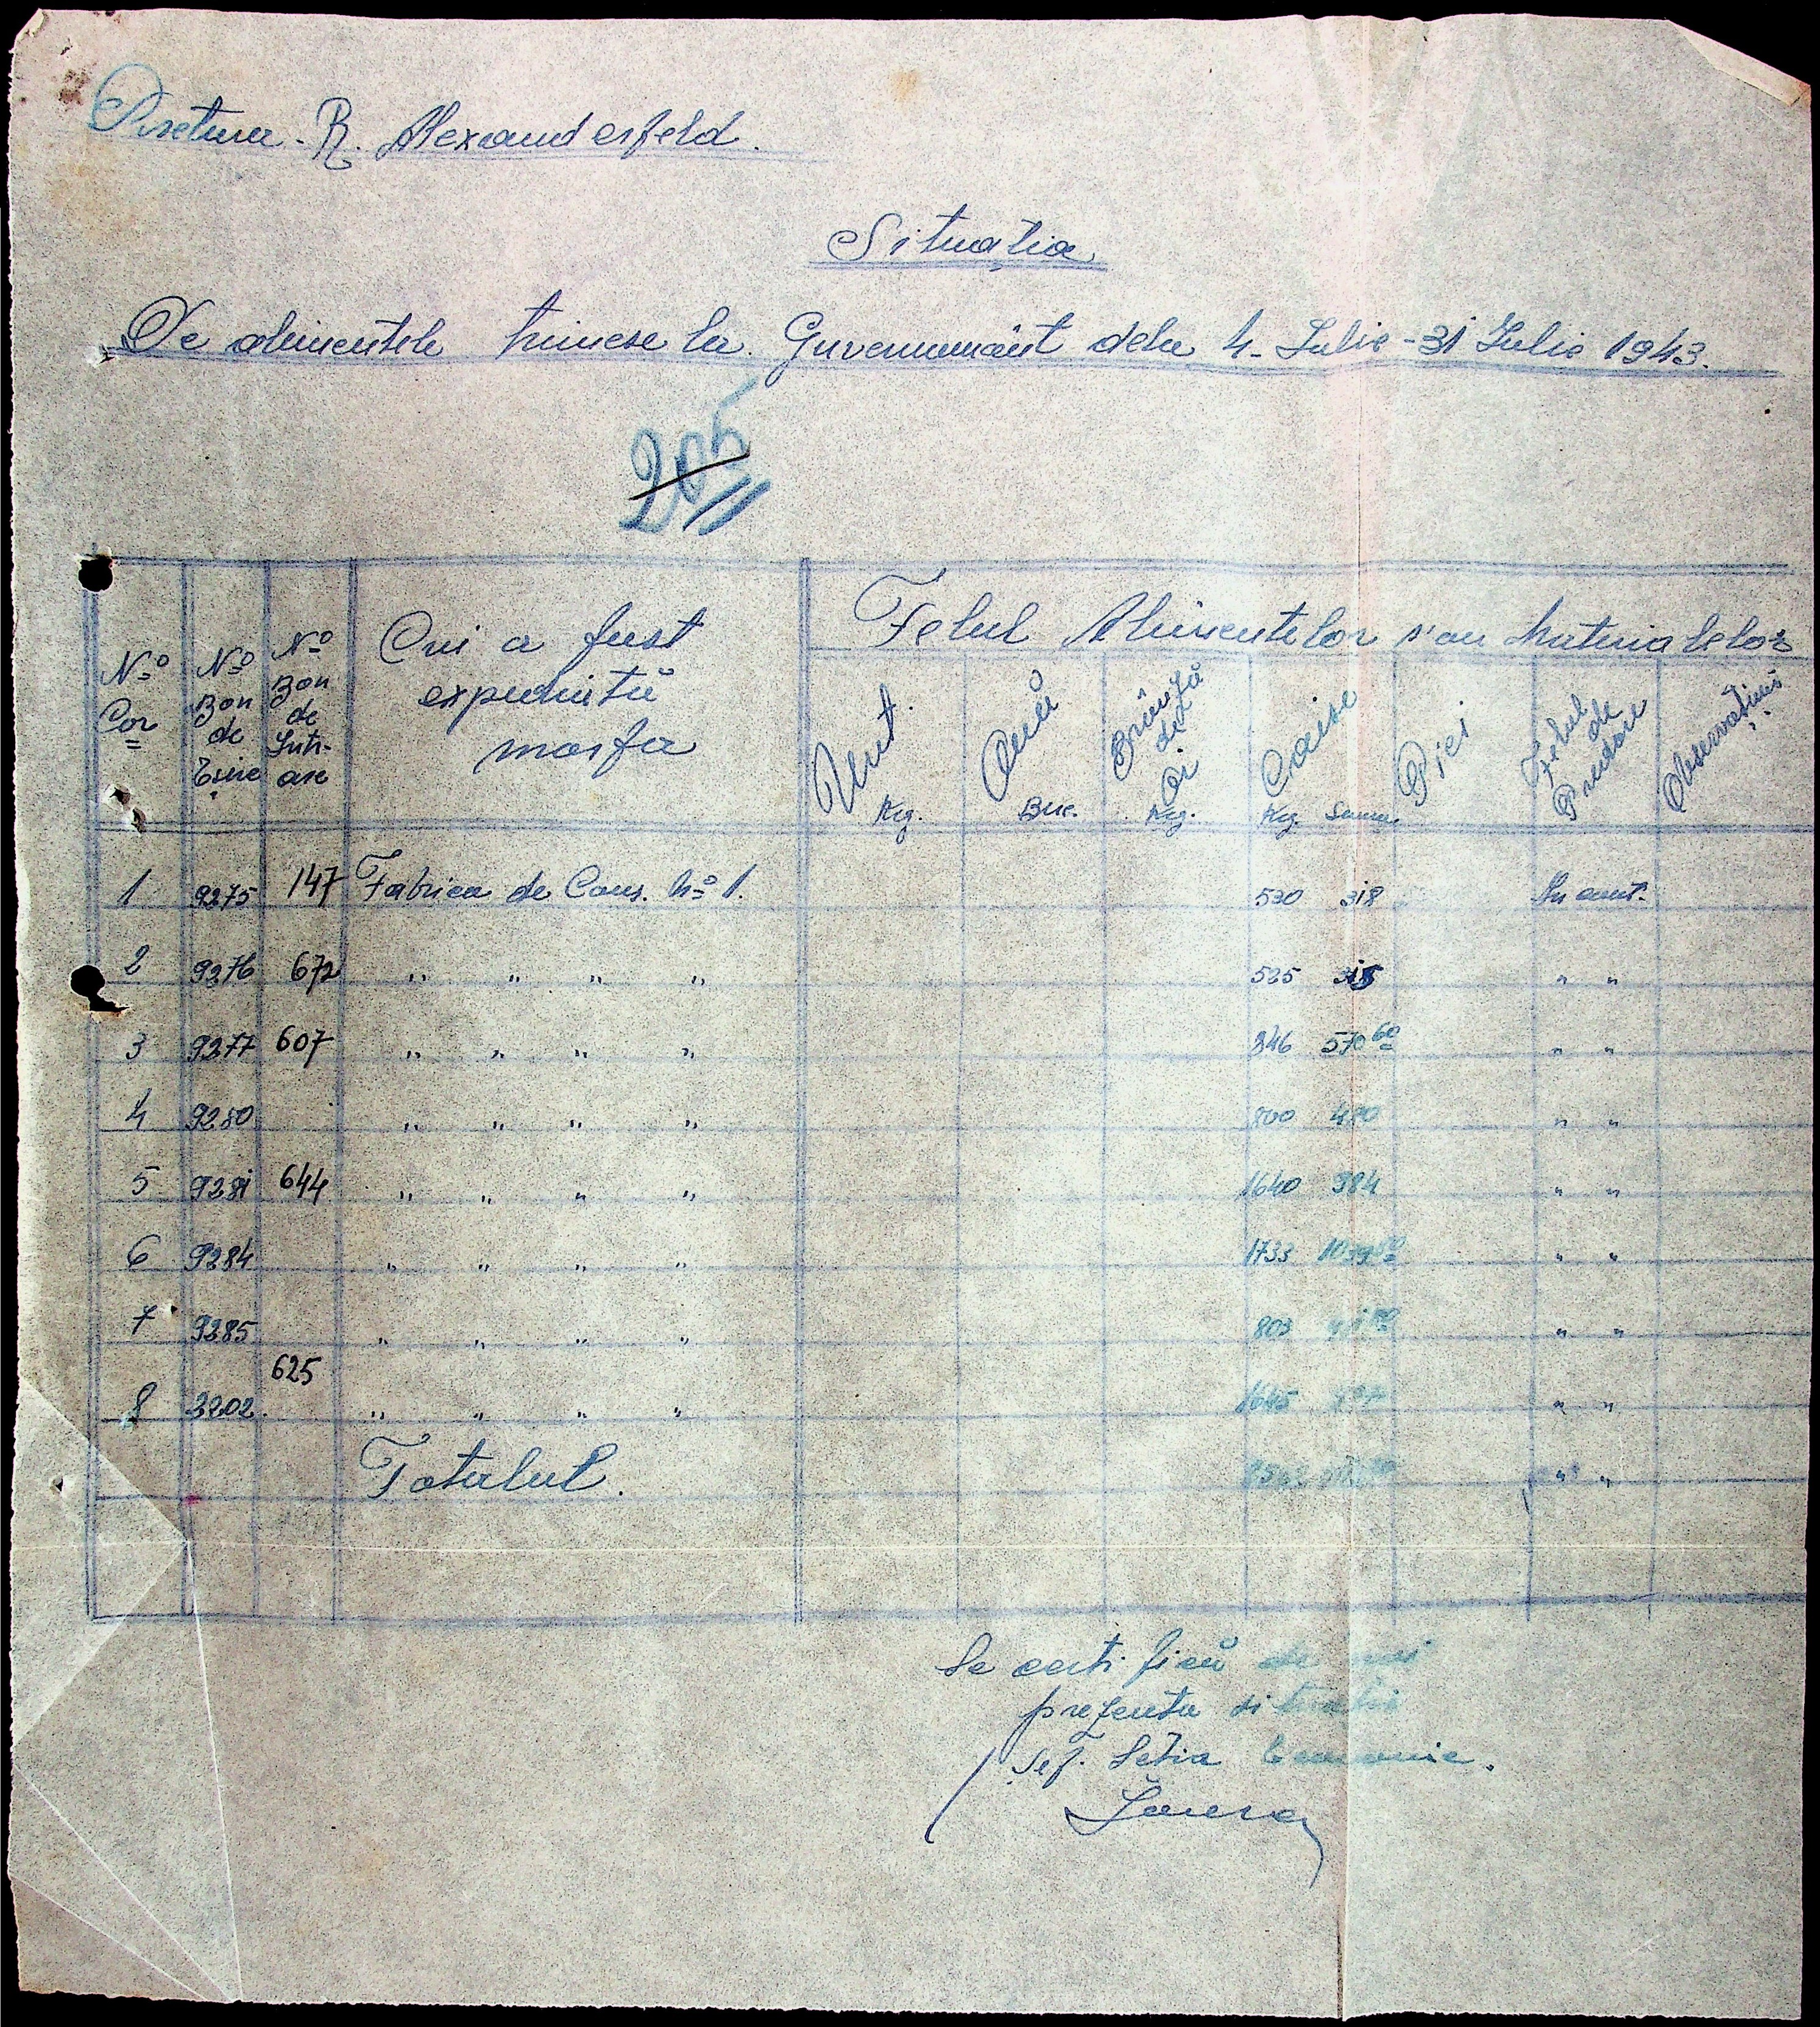 Pretura - R. Alexanderfeld.
Situația
De alimentele trimese la Guvernamânt dela 4- Iulie - 31 Iulie 1943.
205
No Cor | No Bon de Eșire | No Bon de Intrare | Cui a fust expeduită marfa | Felul Alimentelor s'au Materialelor
Unt. Kg. | Ouă Buc. | Brânză de Oi Kg. | Caise Kg. Suma | Piei | Felul de Predare | Observațiuni
1 9275 147 Fabrica de Cons. No 1. 530 318 In cont.
2 9276 672 " " " " 525 315 " "
3 9277 607 " " " " 946 570 60 " "
4 9280 " " " " 800 480 " "
5 9281 644 " " " " 1640 984 " "
6 9284 " " " " 1733 1039 80 " "
7 9285 " " " " 803 " "
625
8 3202. " " " " 1645 " "
Totalul. " "
Se certifică de noi
prezenta situatie
Șef. Setia Economic.